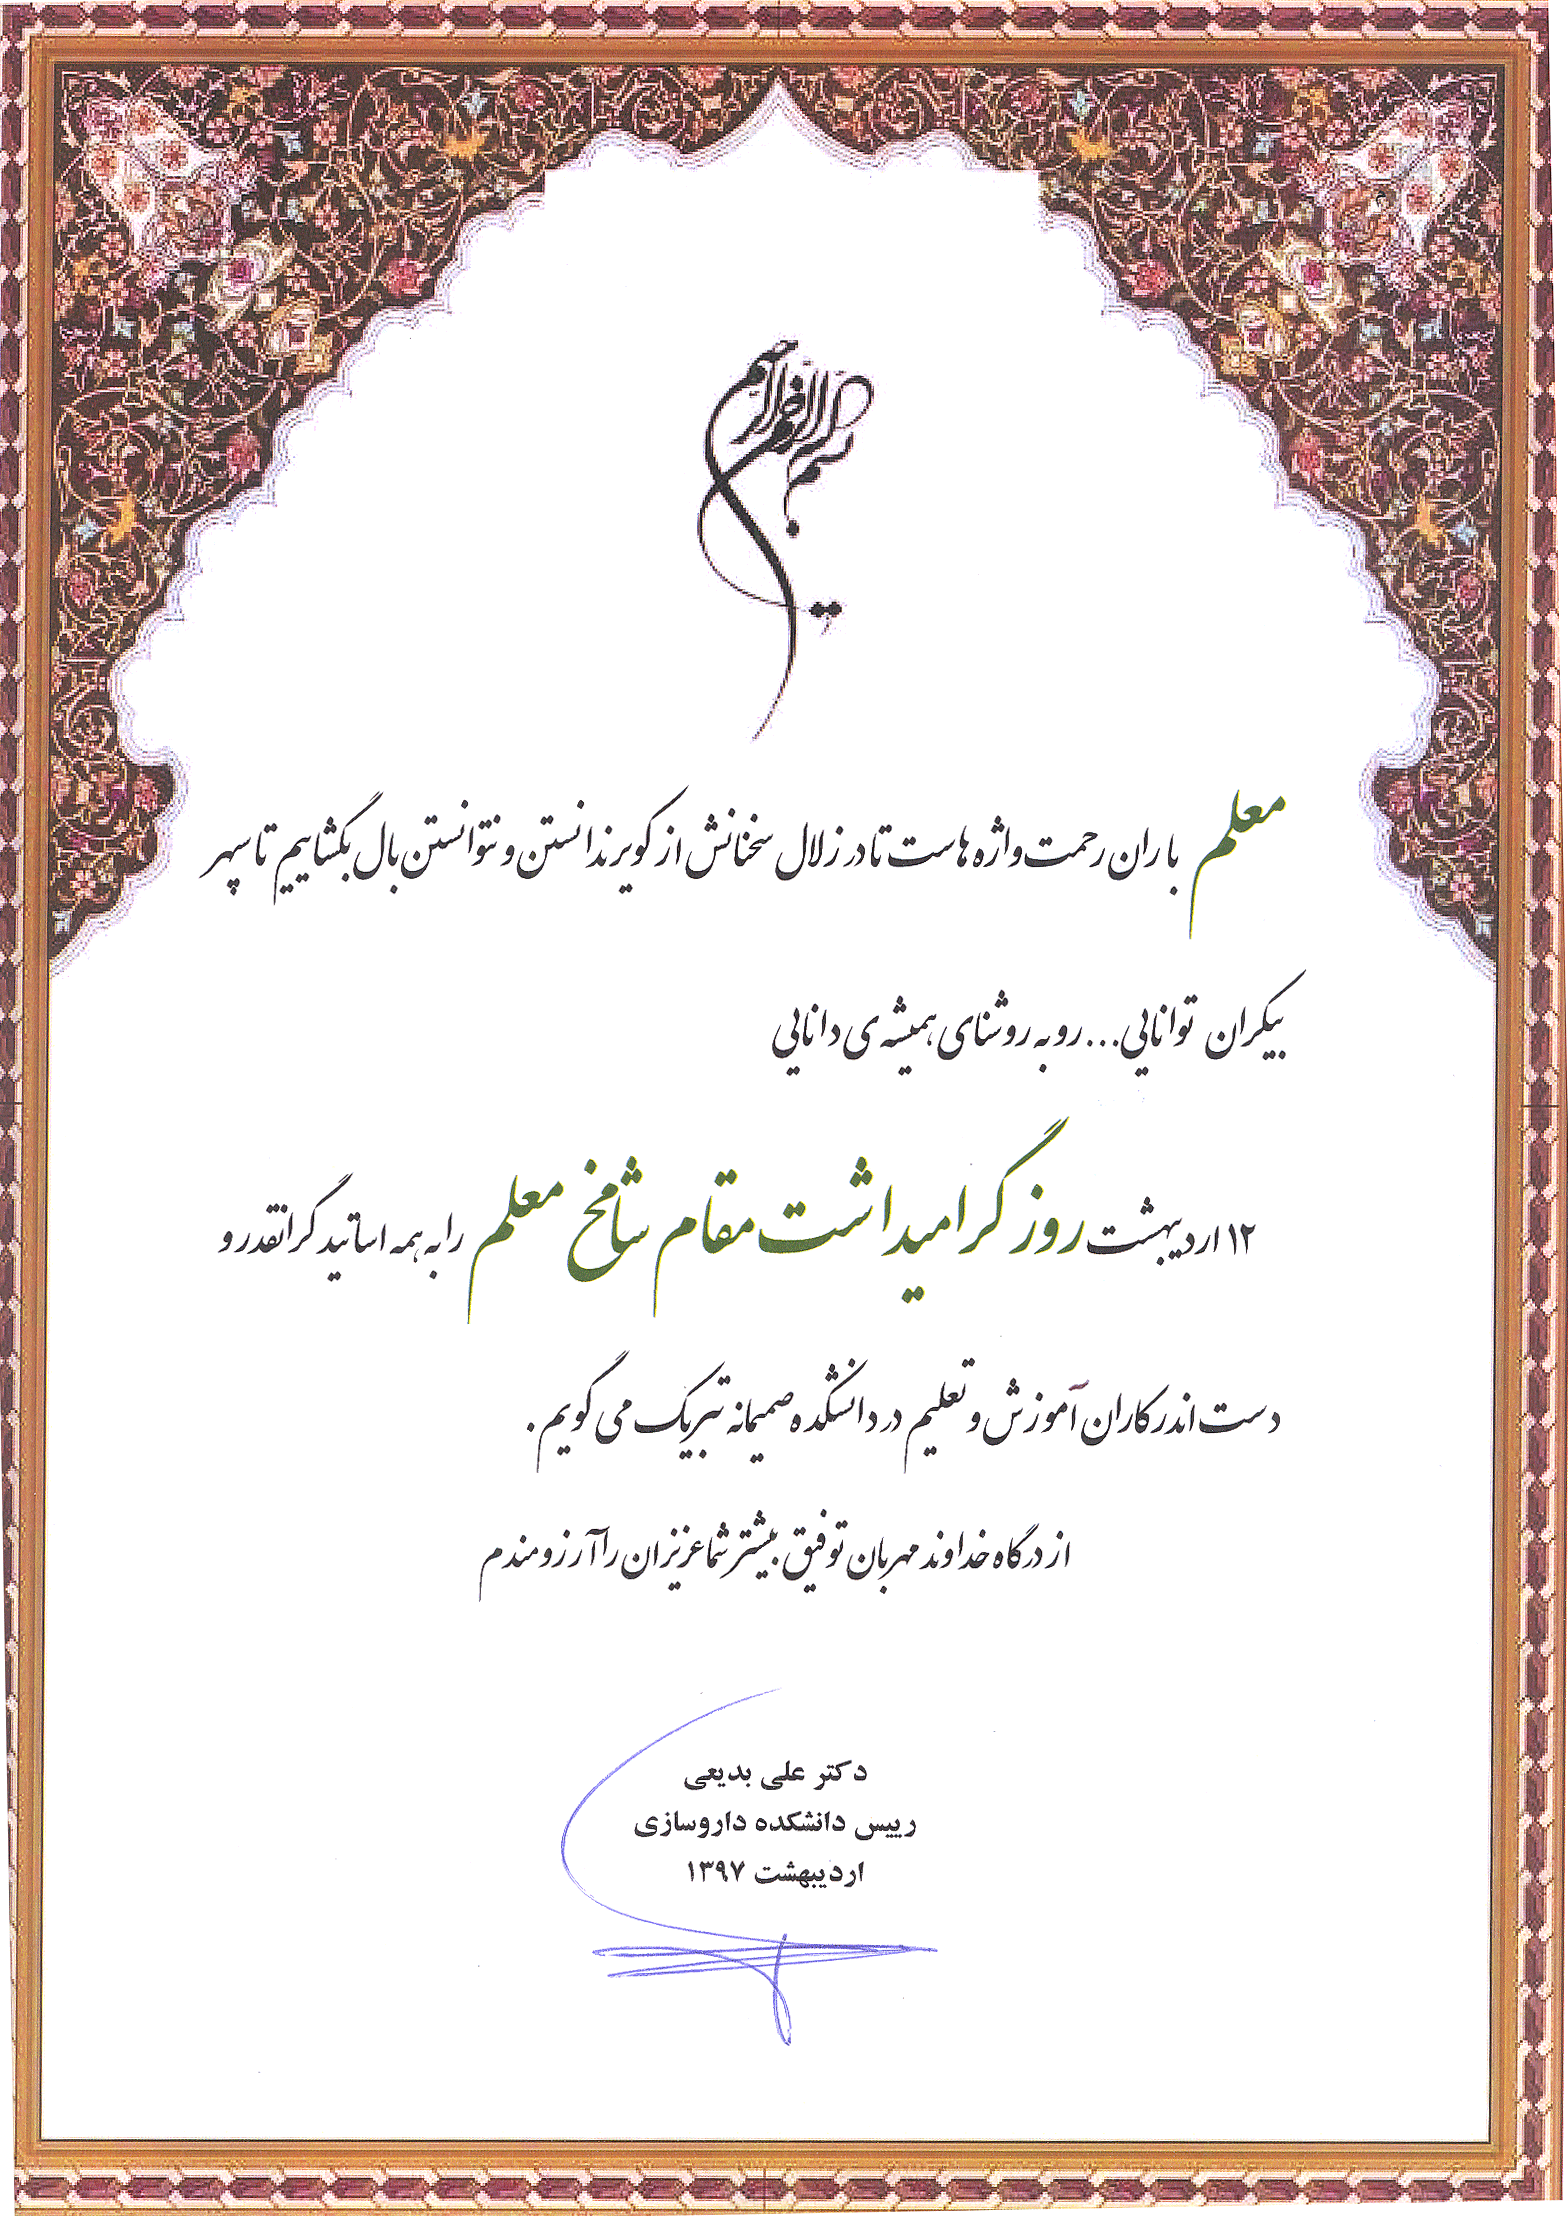 بسم الله الرحمن الرحیم
معلم باران رحمت واژه هاست تا در زلال سخنانش از کویر ندانستن و نتوانستن بال بگشاییم تا سپهر
بیکران توانایی... رو به روشنای همیشه ی دانایی
۱۲ اردیبهشت روز گرامیداشت مقام شامخ معلم را به همه اساتید گرانقدر و
دست اندرکاران آموزش و تعلیم در دانشکده صمیمانه تبریک می گویم.
از درگاه خداوند مهربان توفیق بیشتر شما عزیزان را آرزومندم
دکتر علی بدیعی
رییس دانشکده داروسازی
اردیبهشت ۱۳۹۷